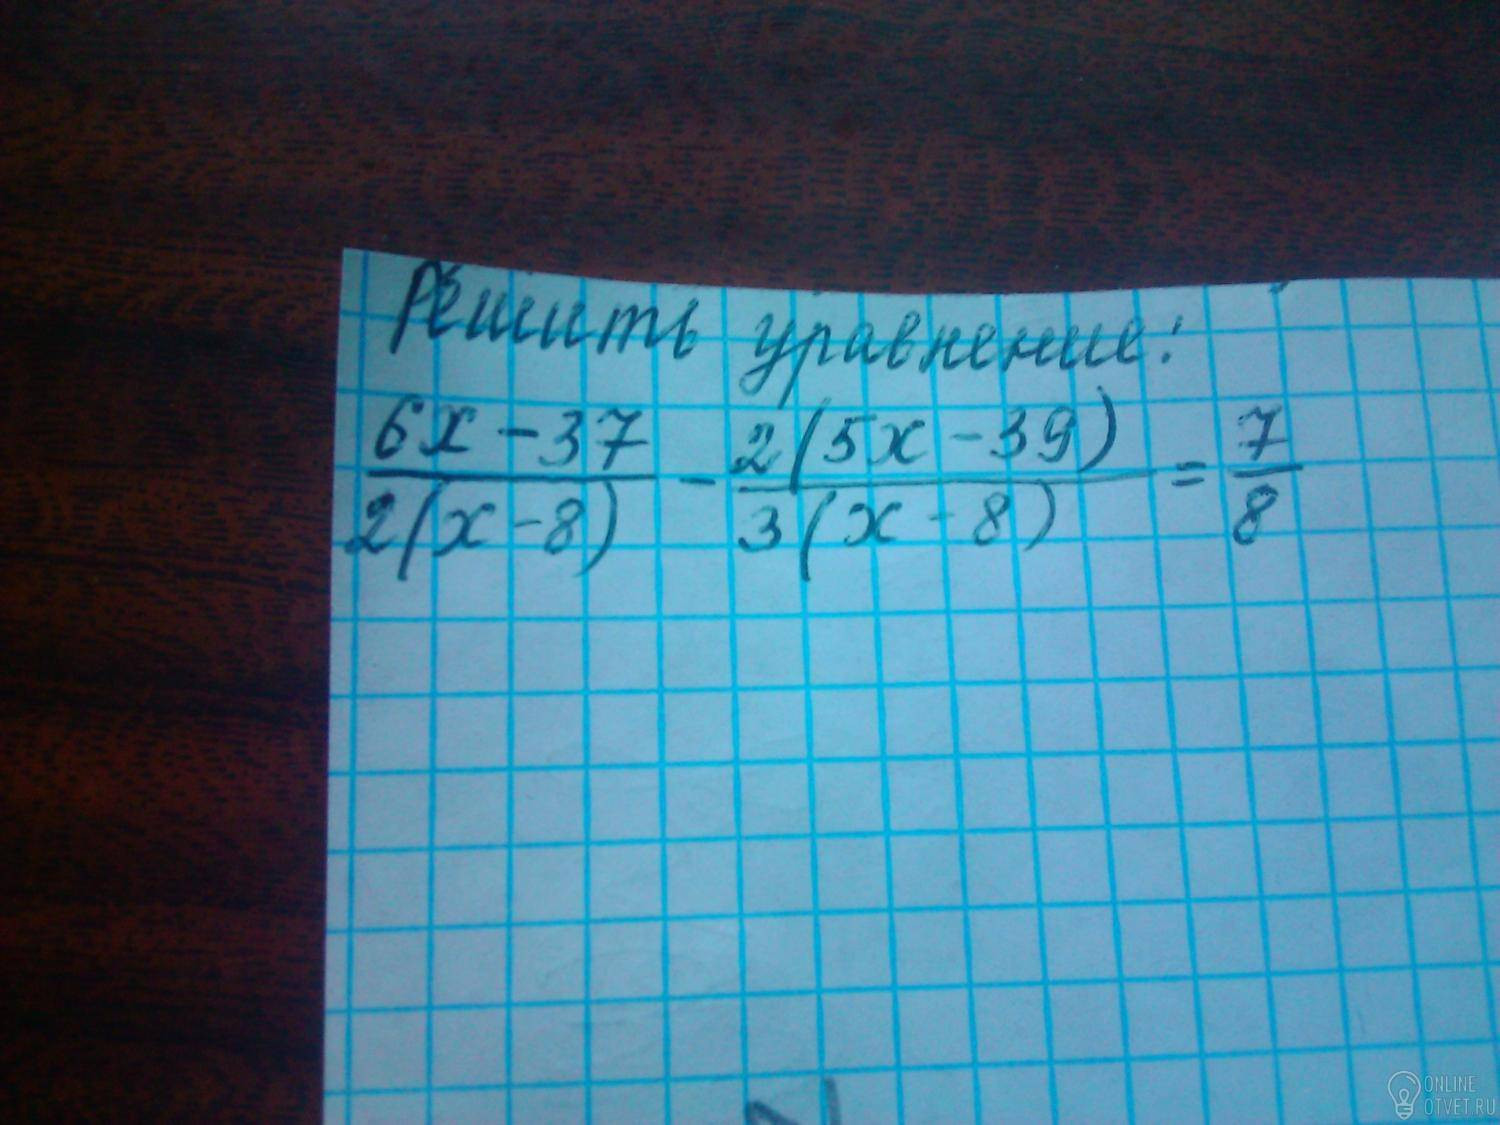 Решить уравнение:
6x - 37 / 2(x - 8) - 2(5x - 39) / 3(x - 8) = 7 / 8
ONLINE
OTVET.RU